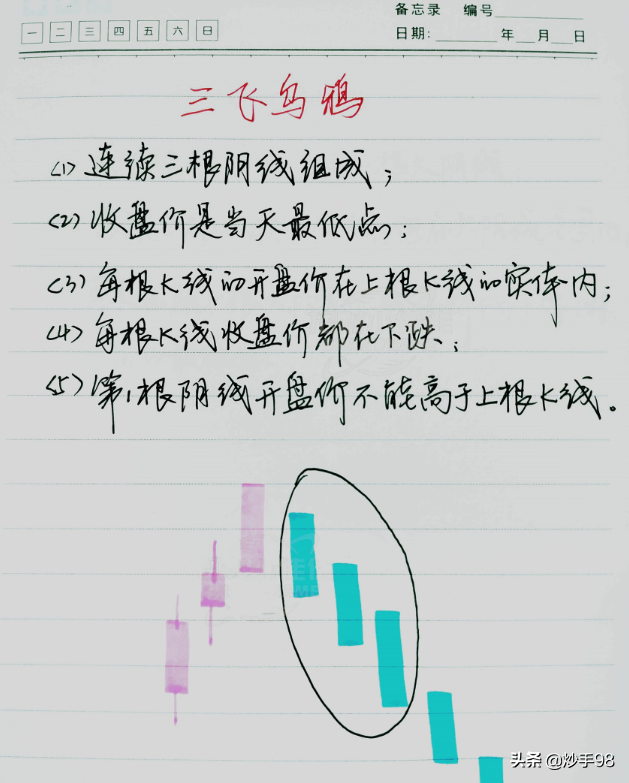 备忘录 编号
一 二 三 四 五 六 日
日期: 年 月 日
三飞乌鸦
(1) 连续三根阴线组成;
(2) 收盘价是当天最低点;
(3) 每根K线的开盘价在上根K线的实体内;
(4) 每根K线收盘价都在下跌;
(5) 第1根阴线开盘价不能高于上根K线。
头条 @炒手98